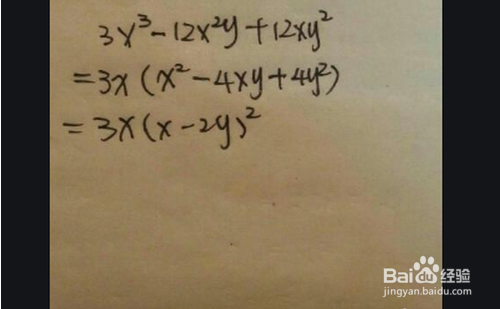 3x³-12x²y+12xy²
=3x(x²-4xy+4y²)
=3x(x-2y)²
Baidu经验
jingyan.baidu.com